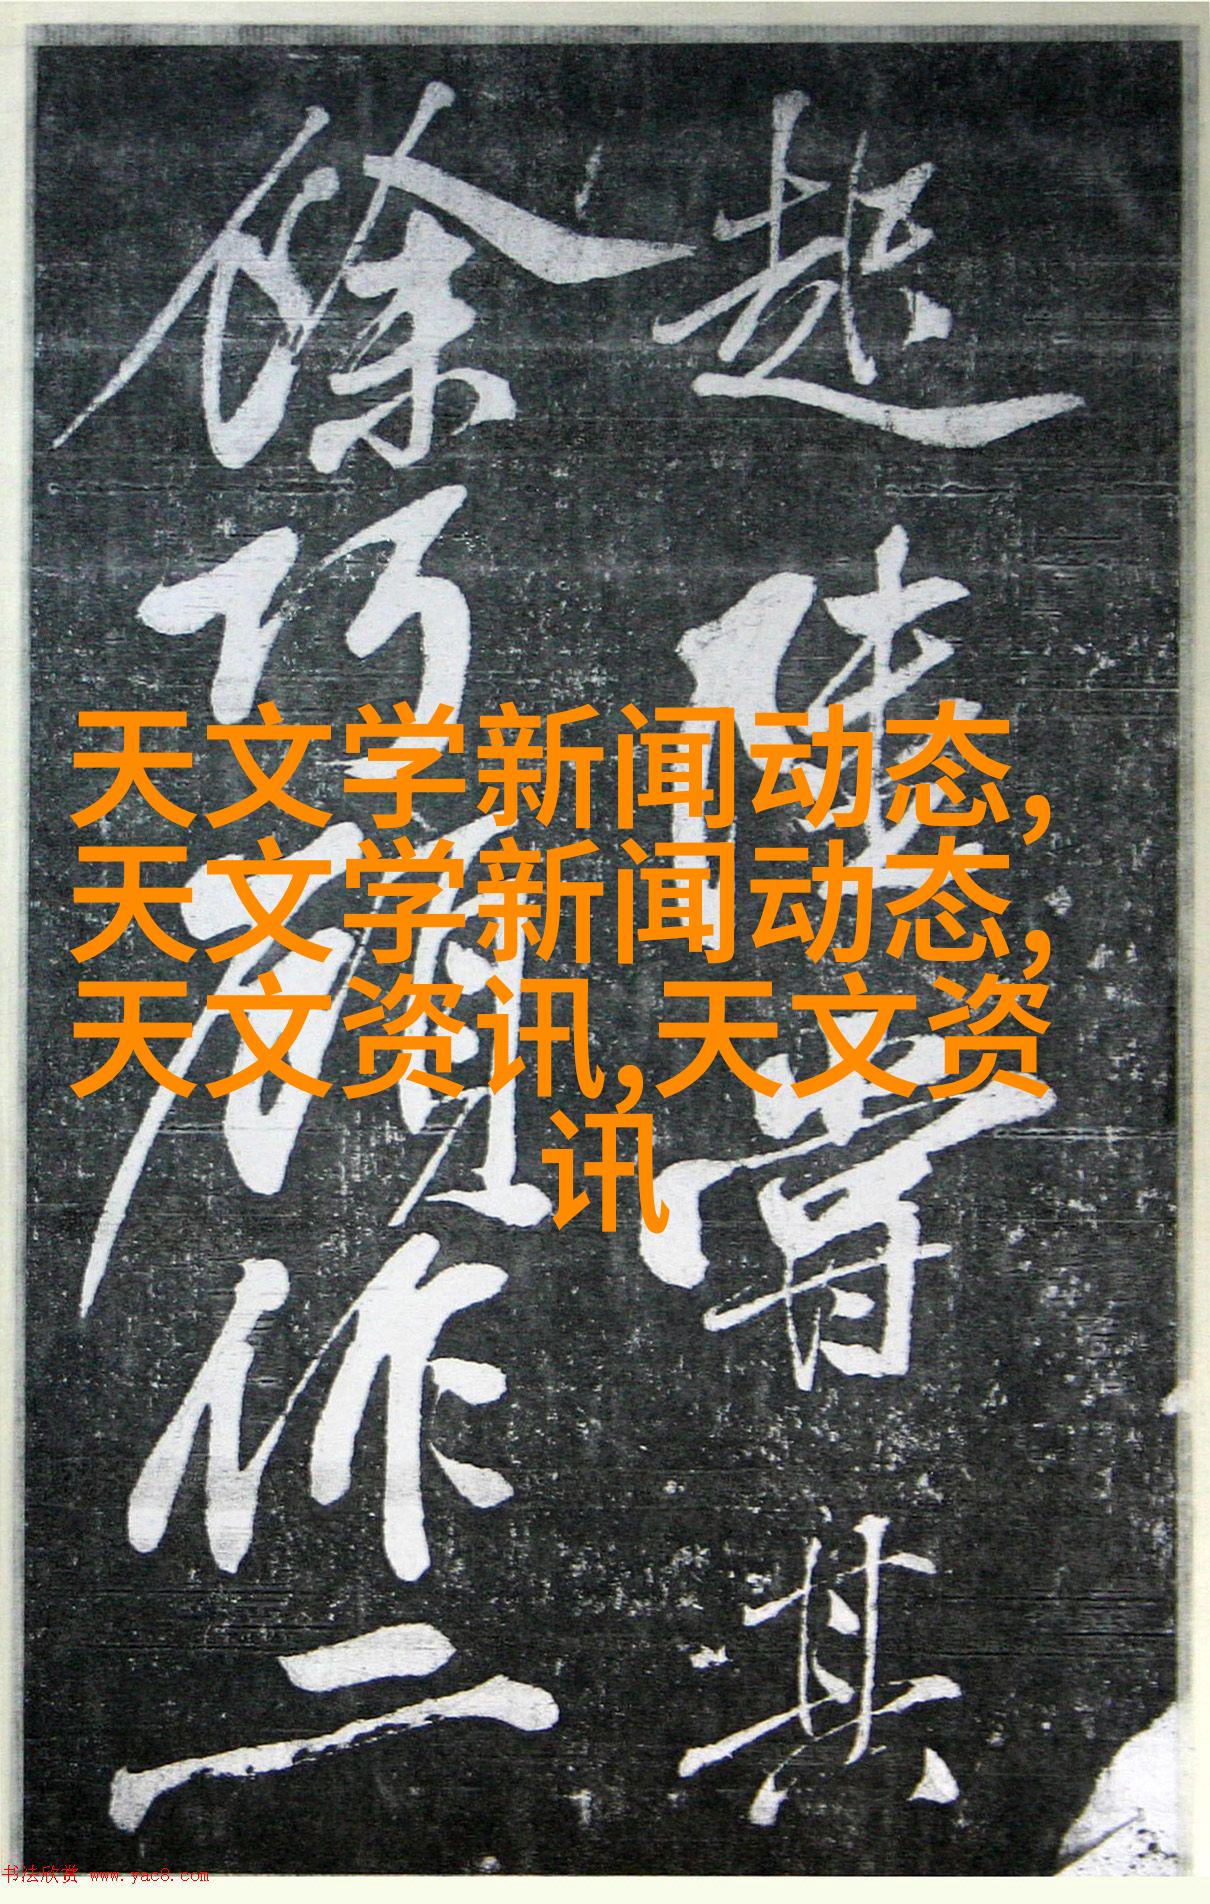 天文学新闻动态,
天文学新闻动态,
天文资讯,天文资
讯
趙
其
徐
作
二
书法欣赏 www.yac8.com